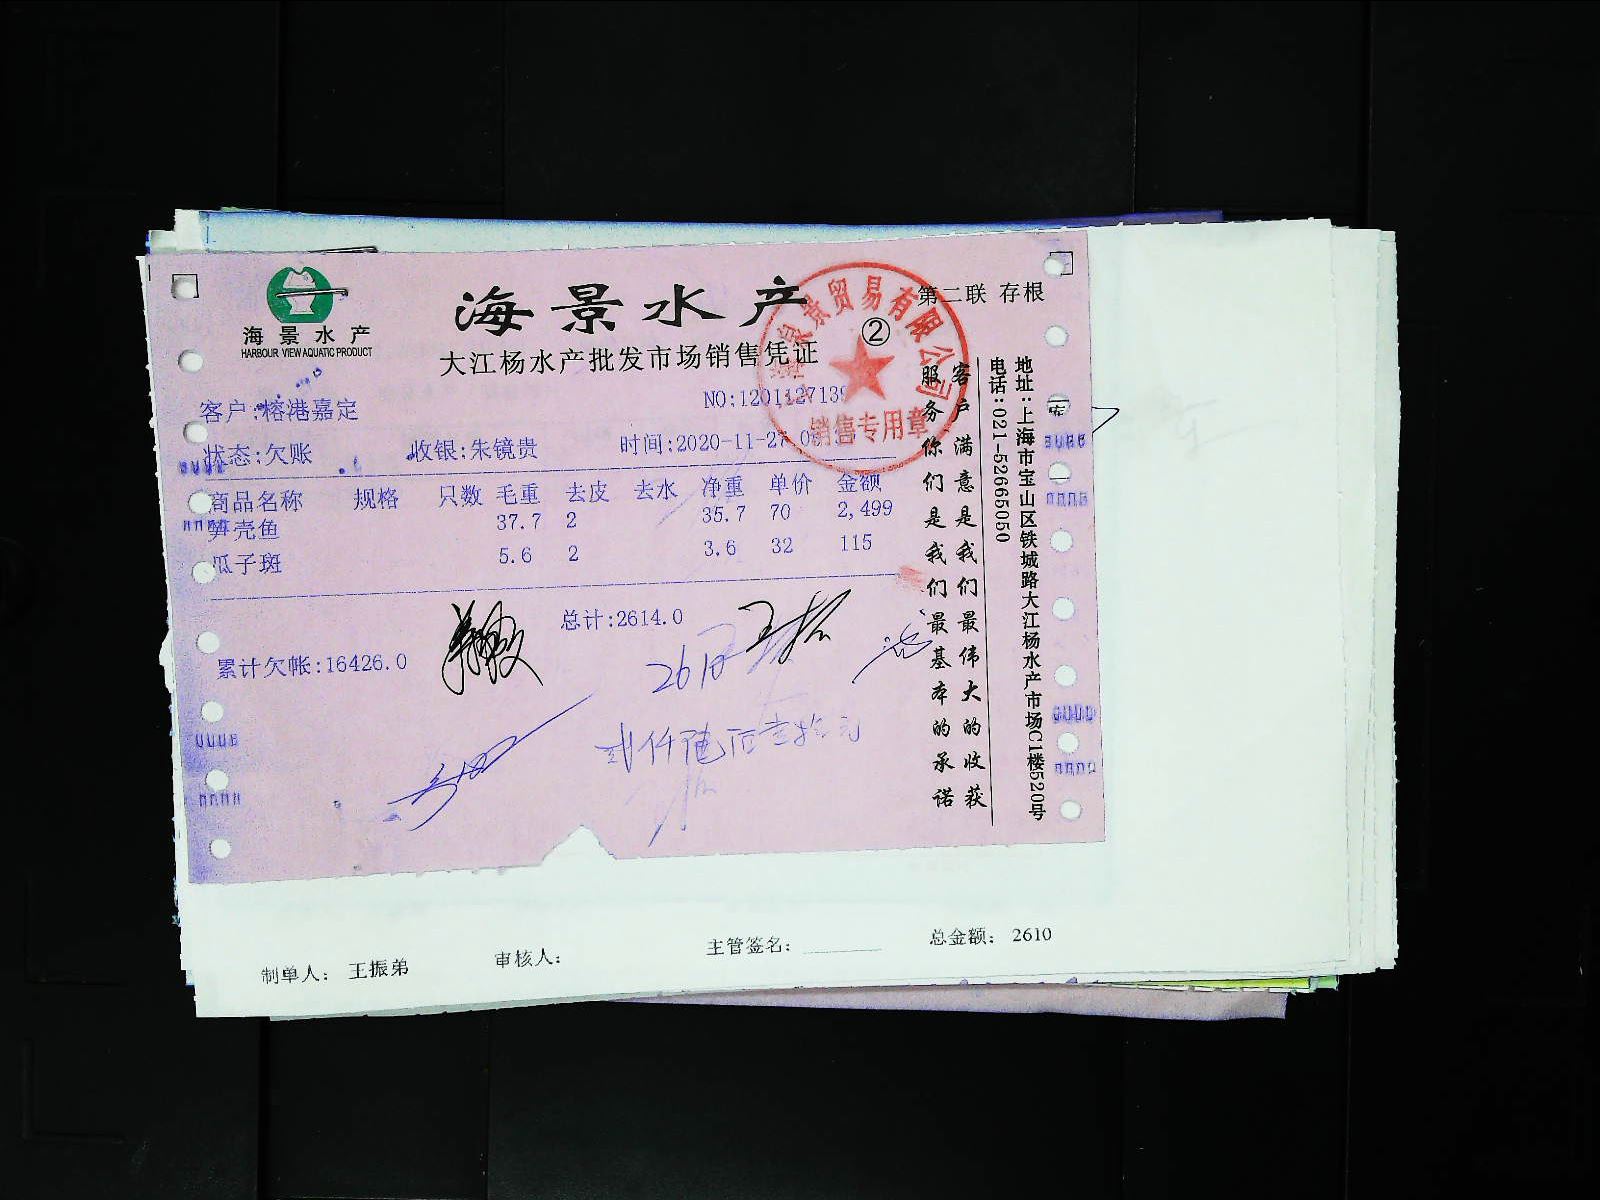 海景水产
HARBOUR VIEW AQUATIC PRODUCT
海景水产
大江杨水产批发市场销售凭证
第二联 存根
②
景贸易有限公司
销售专用章
客户:榕港嘉定
NO:120112713
状态:欠账 收银:朱镜贵 时间:2020-11-27
商品名称 规格 只数 毛重 去皮 去水 净重 单价 金额
笋壳鱼 37.7 2 35.7 70 2,499
瓜子斑 5.6 2 3.6 32 115
总计:2614.0
累计欠帐:16426.0
2610
贰仟陆佰壹拾元
客户满意是我们最伟大的收获
服务你们是我们最基本的承诺
地址:上海市宝山区铁城路大江杨水产市场C1楼520号
电话:021-52665050
制单人: 王振弟 审核人: 主管签名: 总金额: 2610